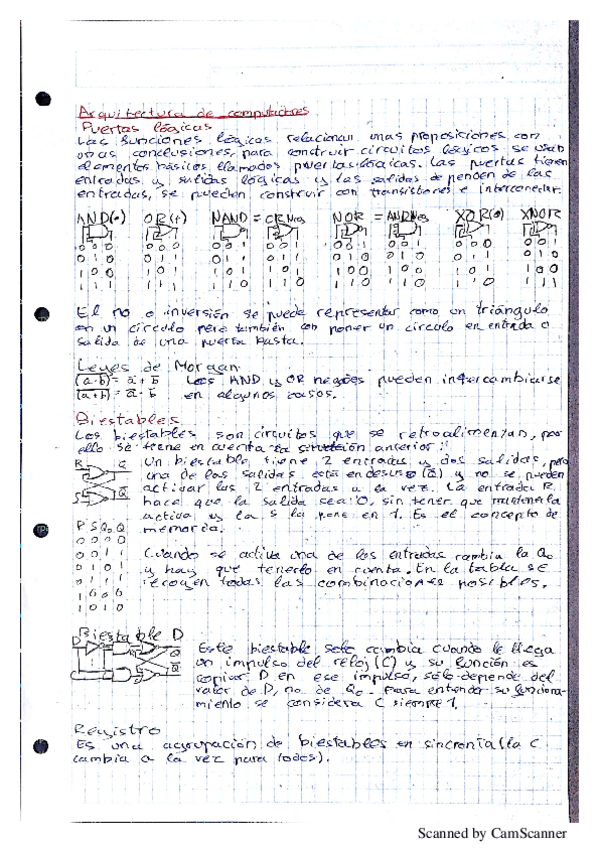 Arquitectura de computadores
Puertas lógicas
Las funciones lógicas relacionan unas proposiciones con
otras conclusiones, para construir circuitos lógicos se usan
elementos básicos llamados puertas lógicas. Las puertas tienen
entradas y salidas lógicas y las salidas dependen de las
entradas, se pueden construir con transistores e interconectar.
AND(·) OR(+) NAND = OR Neg NOR = AND Neg XOR(⊕) XNOR
El no o inversión se puede representar como un triángulo
en un círculo pero también con poner un círculo en entrada o
salida de una puerta basta.
Leyes de Morgan
(a·b) = a + b Los AND y OR negados pueden intercambiarse
(a+b) = a · b en algunos casos.
Biestables
Los biestables son circuitos que se retroalimentan, por
ello se tiene en cuenta la situación anterior:
Un biestable tiene 2 entradas y dos salidas, pero
una de las salidas está en desuso (Q) y no se pueden
activar las 2 entradas a la vez. La entrada R
hace que la salida sea 0, sin tener que mantenerla
activa y la S la pone en 1. Es el concepto de
memoria.
R S Q₀ Q
0 0 0 0
0 0 1 1
0 1 0 1
0 1 1 1
1 0 0 0
1 0 1 0
Cuando se activa una de las entradas cambia la Q₀
y hay que tenerlo en cuenta. En la tabla se
recogen todas las combinaciones posibles.
Biestable D
Este biestable solo cambia cuando le llega
un impulso del reloj (C) y su función es
copiar D en ese impulso, sólo depende del
valor de D, no de Q₀. Para entender su funciona-
miento se considera C siempre 1.
Registro
Es una agrupación de biestables en sincronía (la C
cambia a la vez para todos).
Scanned by CamScanner